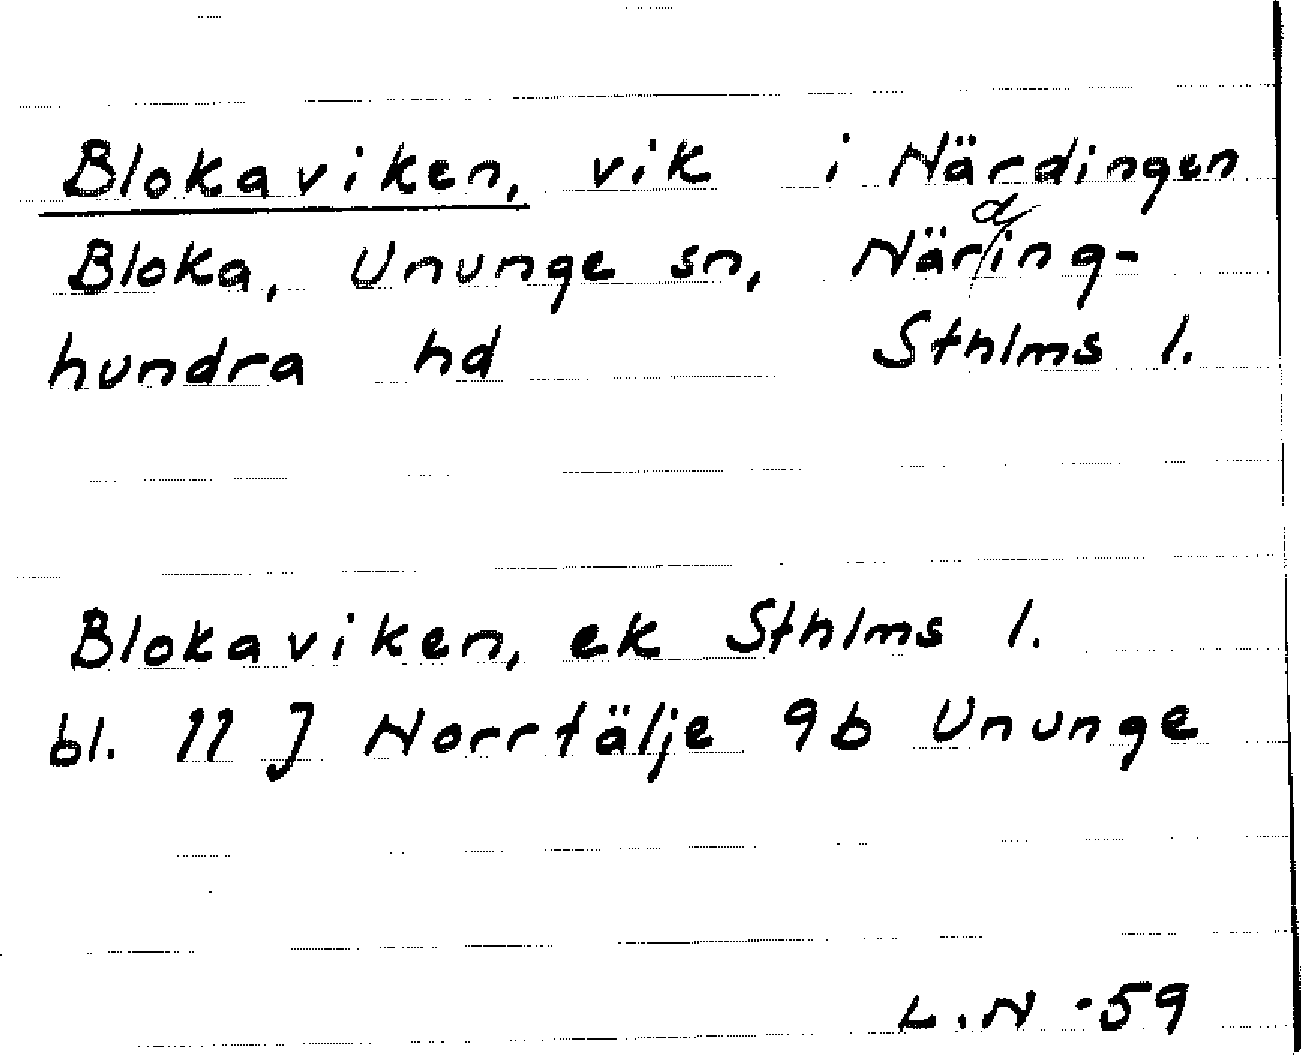 Blokaviken, vik i Närdingen
Bloka, Ununge sn, Närding-
hundra hd Sthlms l.
Blokaviken, ek Sthlms l.
bl. 11 J Norrtälje 9b Ununge
L.N -59